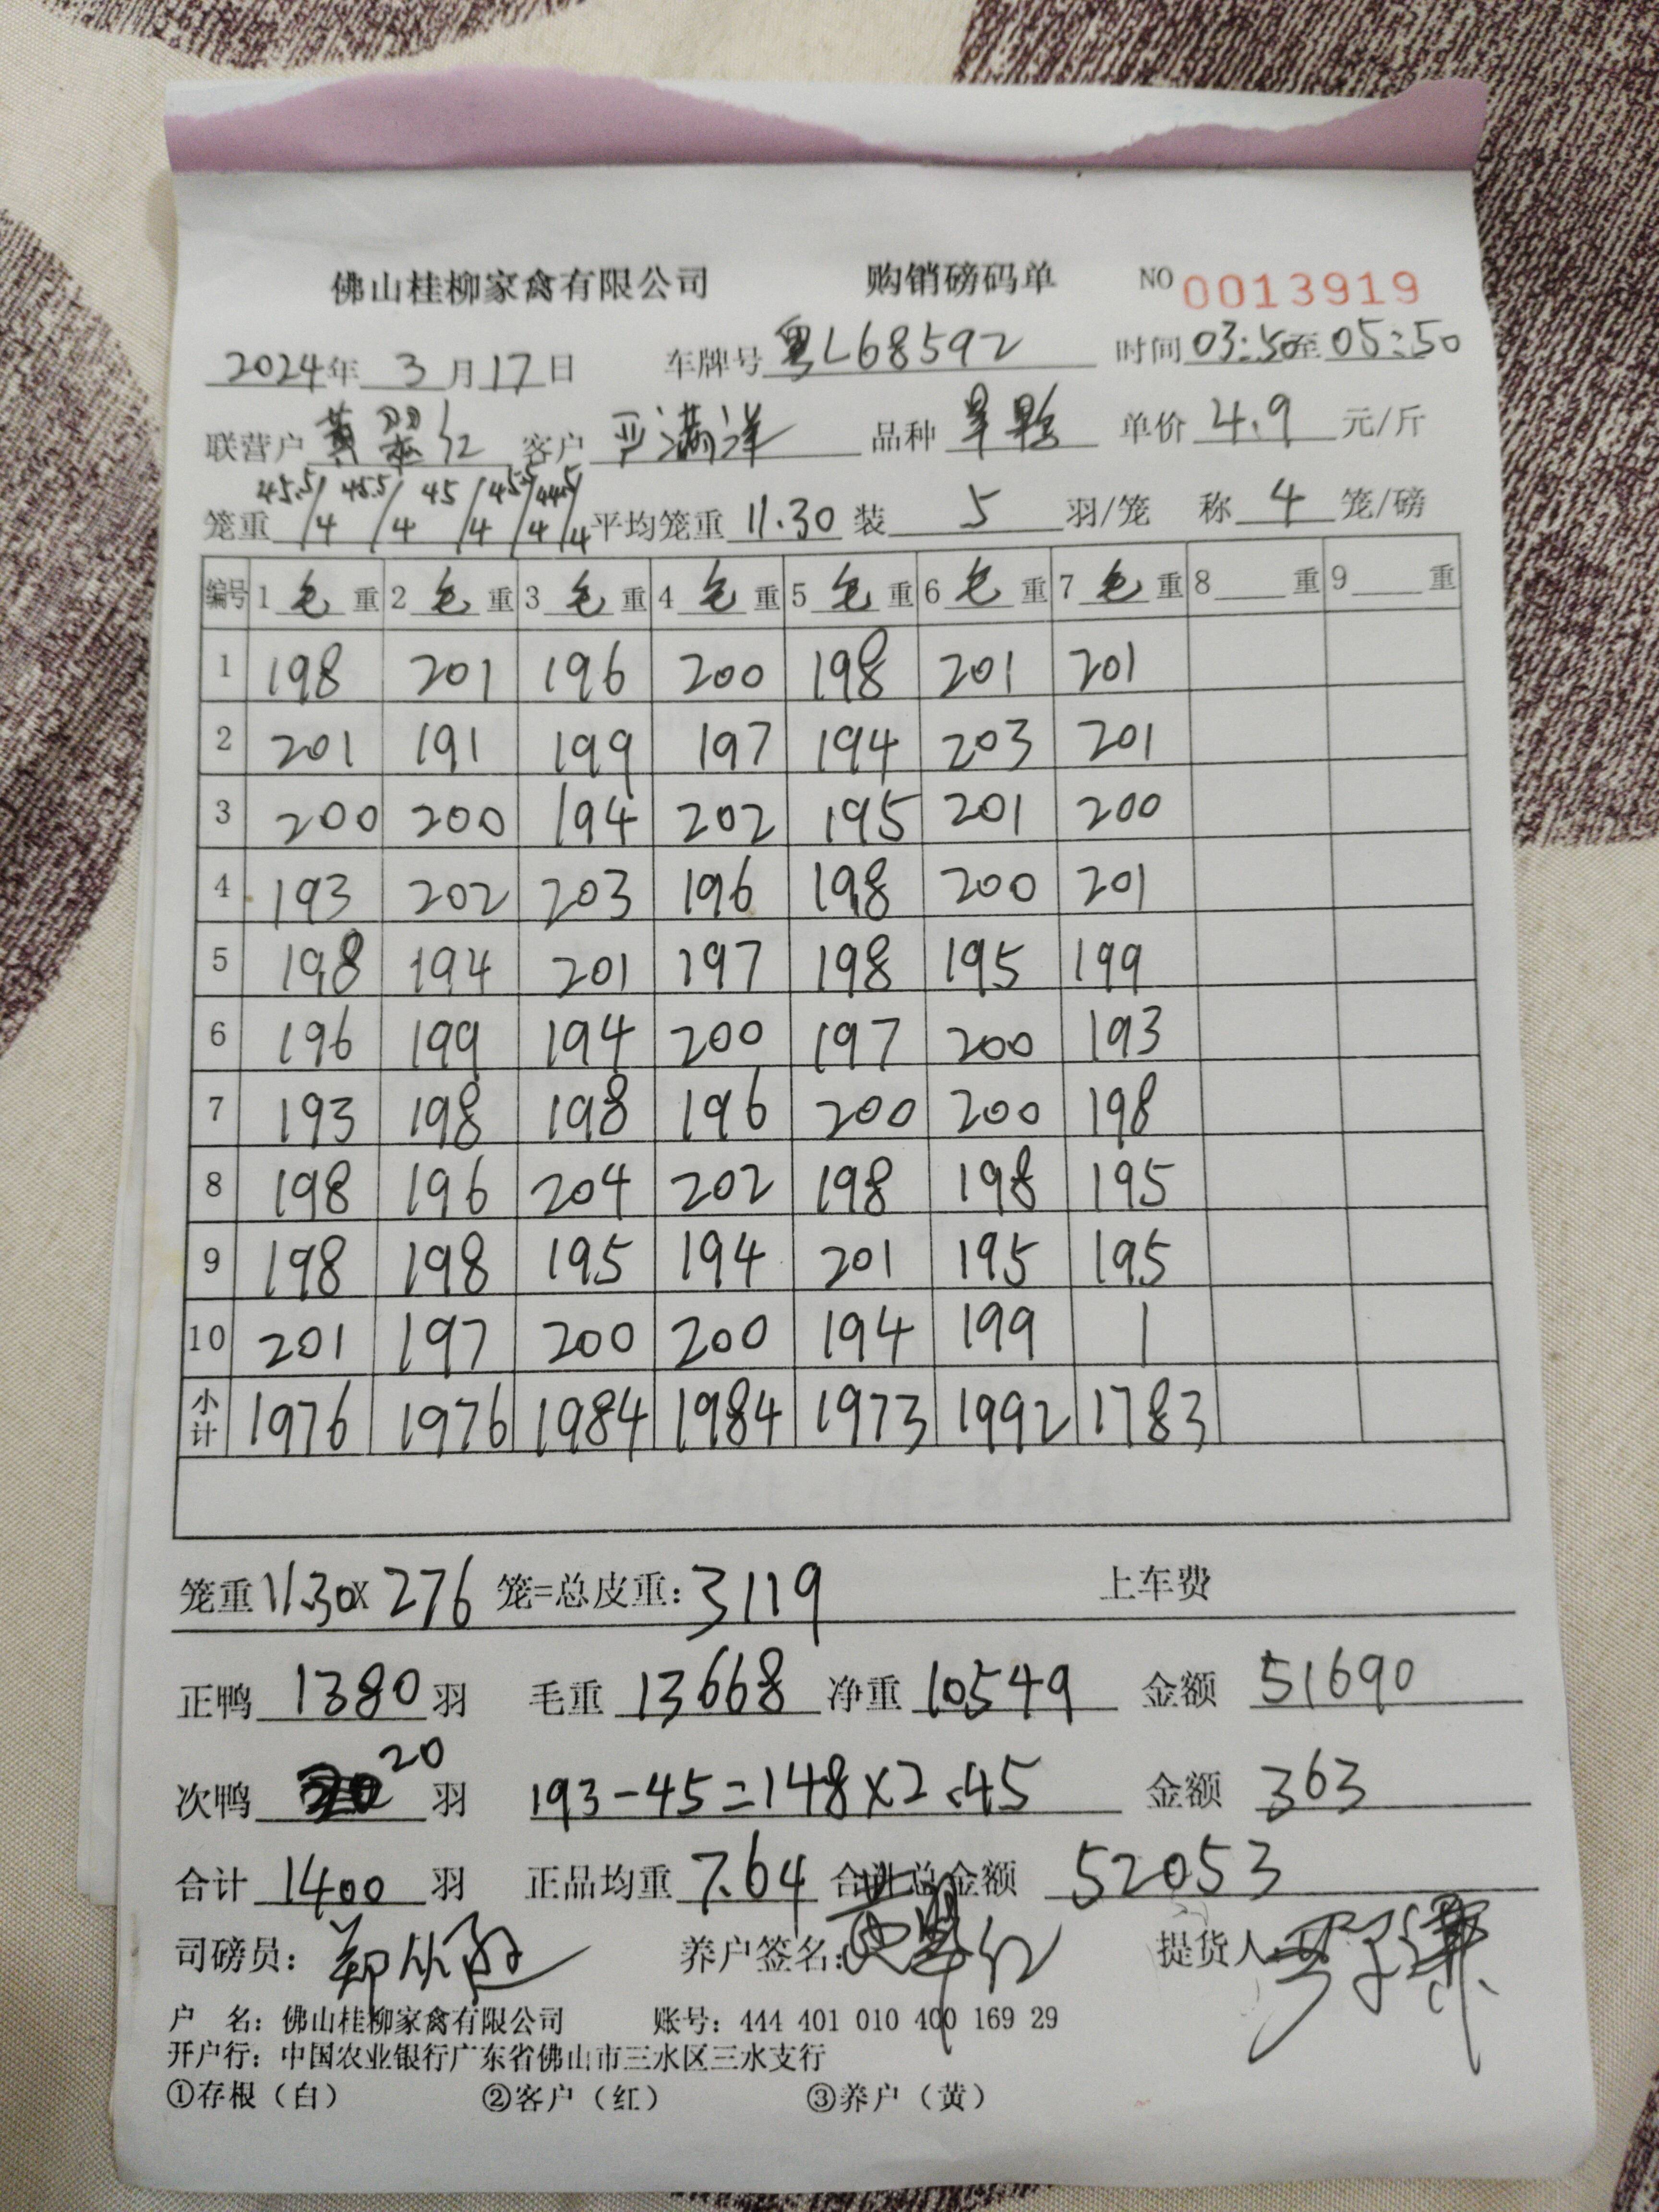 佛山桂柳家禽有限公司 购销磅码单 NO 0013919
2024年 3 月 17 日 车牌号 粤L68592 时间 03:50 至 05:50
联营户 黄翠红 客户 严满洋 品种 单价 4.9 元/斤
笼重 45.5/4 45.5/4 45/4 45.5/4 44.5/4 平均笼重 11.30 装 5 羽/笼 称 4 笼/磅
编号 1 毛 重 2 毛 重 3 毛 重 4 毛 重 5 毛 重 6 毛 重 7 毛 重 8 重 9 重
1 198 201 196 200 198 201 201
2 201 191 199 197 194 203 201
3 200 200 194 202 195 201 200
4 193 202 203 196 198 200 201
5 198 194 201 197 198 195 199
6 196 199 194 200 197 200 193
7 193 198 198 196 200 200 198
8 198 196 204 202 198 198 195
9 198 198 195 194 201 195 195
10 201 197 200 200 194 199 1
小计 1976 1976 1984 1984 1973 1992 1783
笼重 11.30 X 276 笼=总皮重: 3119 上车费
正鸭 1380 羽 毛重 13668 净重 10549 金额 51690
次鸭 20 羽 193-45=148×2.45 金额 363
合计 1400 羽 正品均重 7.64 合计总金额 52053
司磅员: 养户签名: 提货人
户 名: 佛山桂柳家禽有限公司 账号: 444 401 010 400 169 29
开户行: 中国农业银行广东省佛山市三水区三水支行
①存根（白） ②客户（红） ③养户（黄）